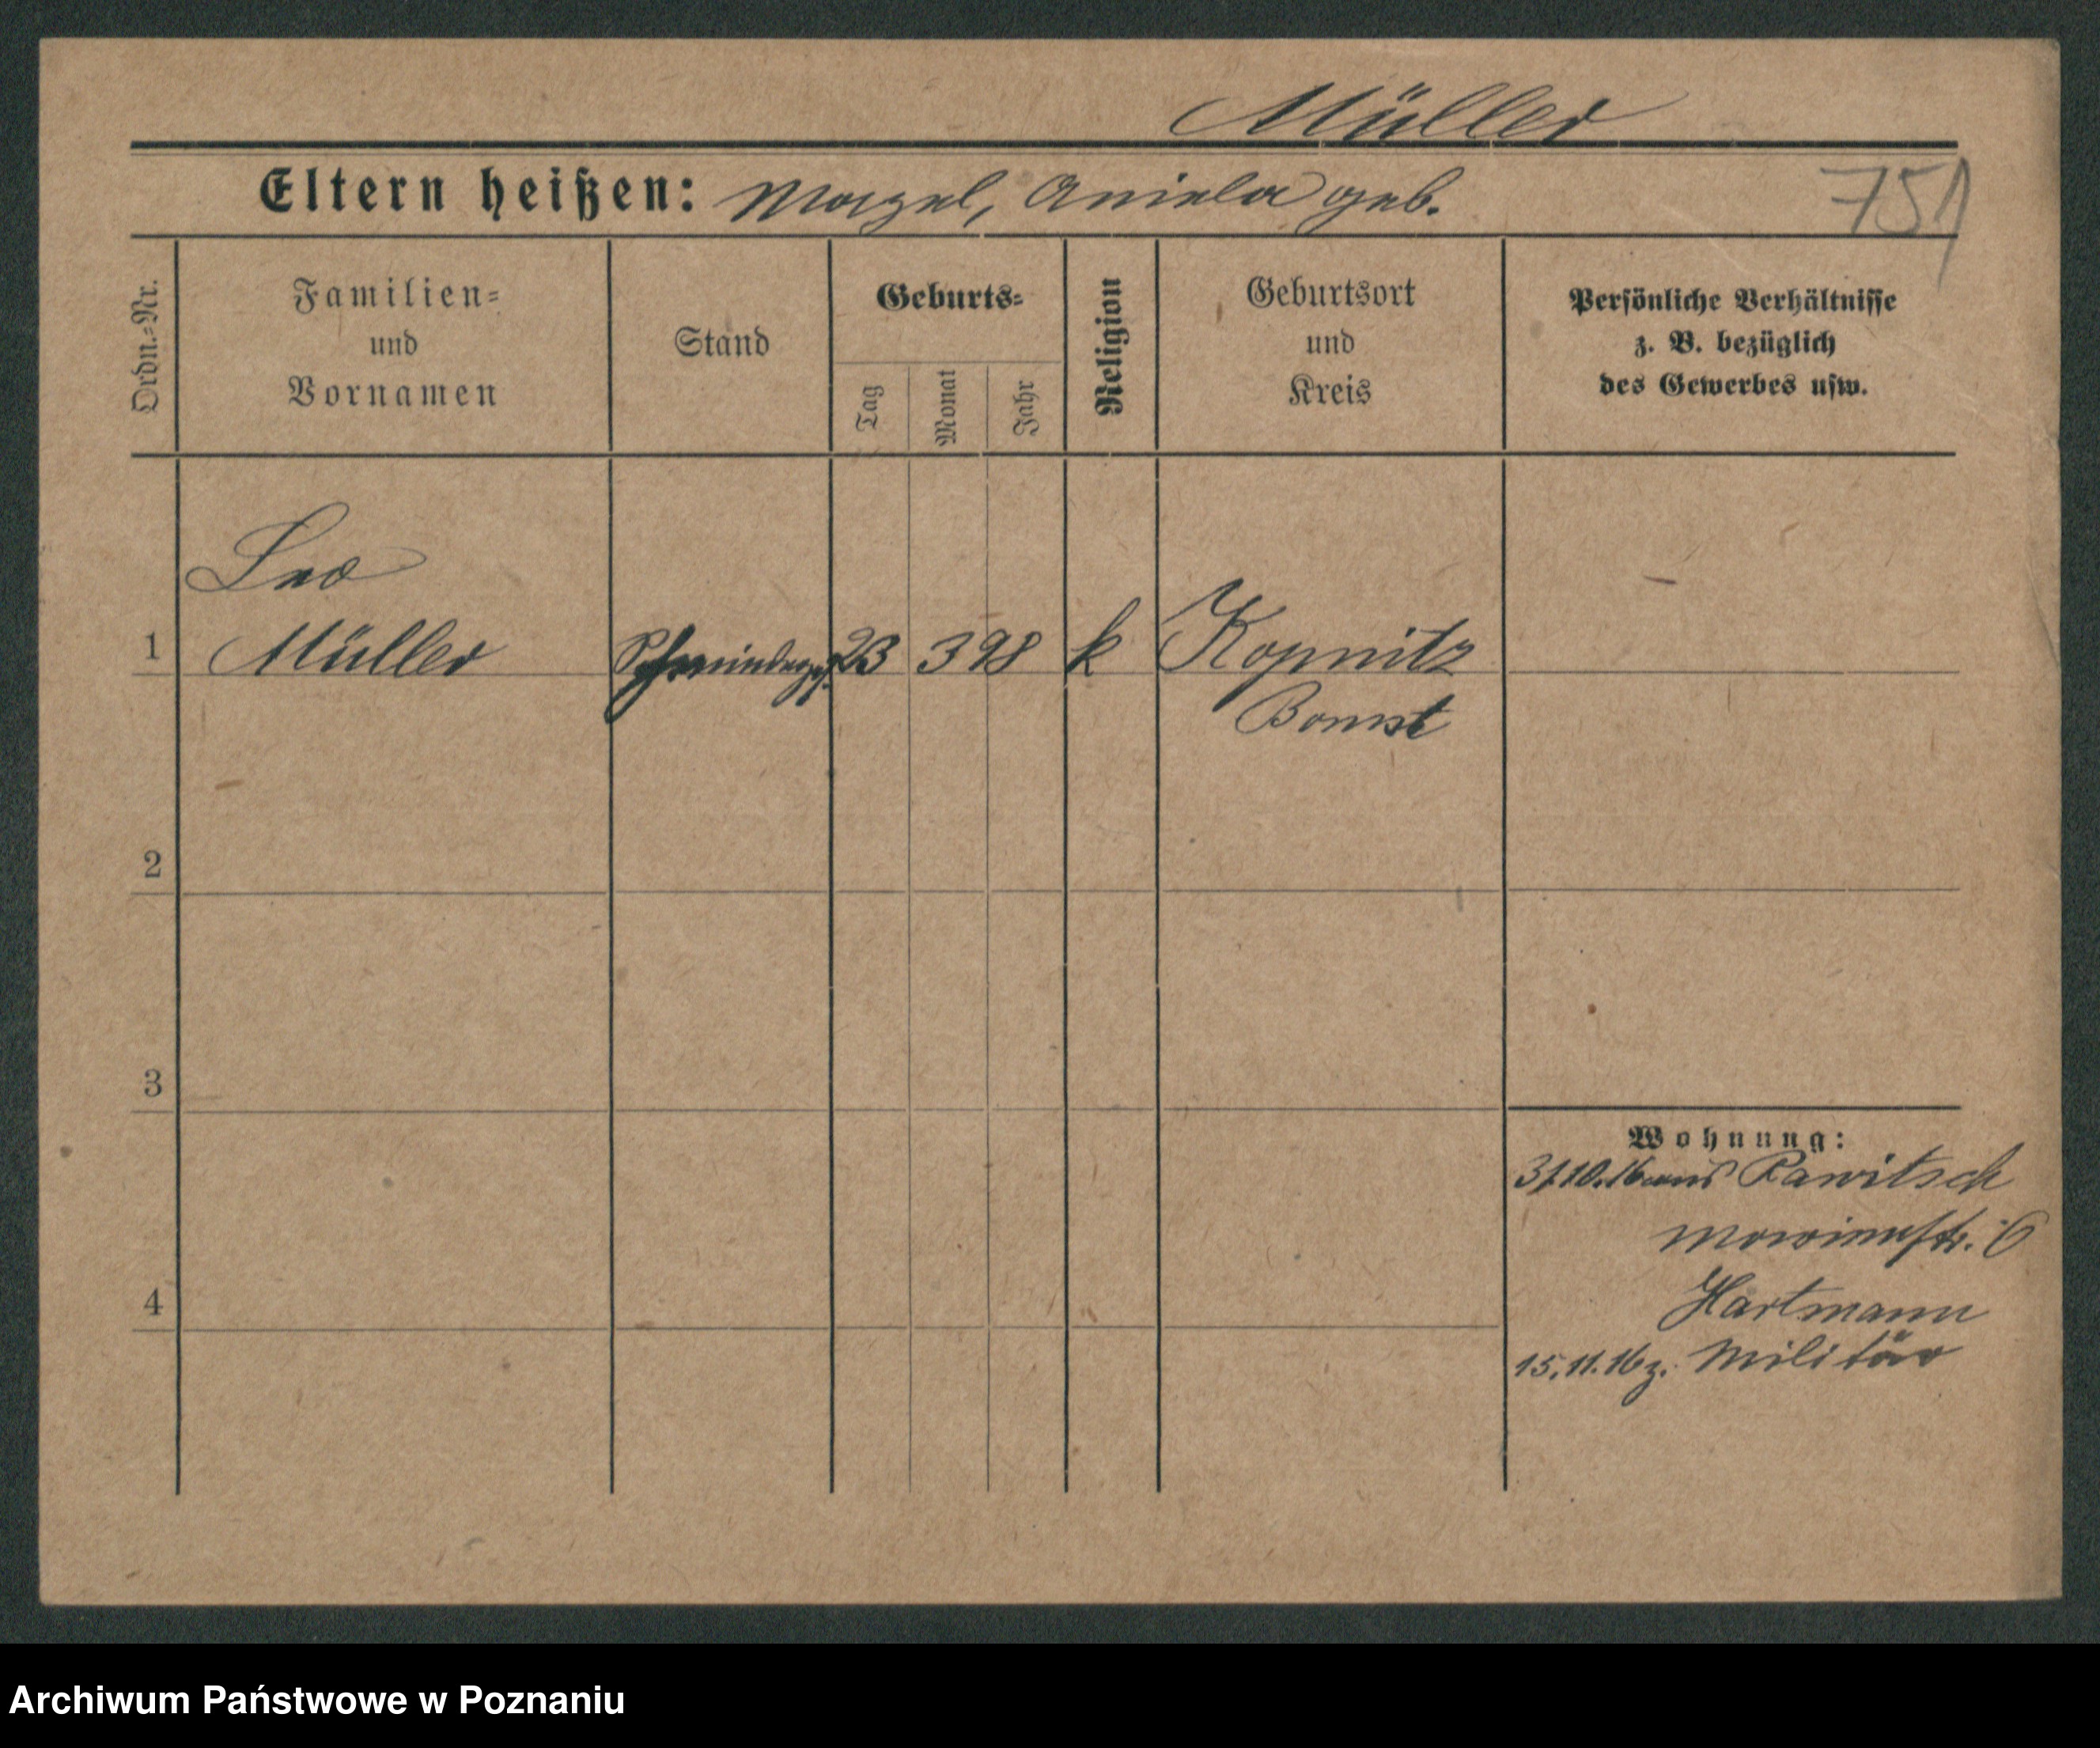 Müller
Eltern heißen: Mazel, Aniela geb.
751
Ordn.=Nr.
Familien=
und
Vornamen
Stand
Geburts=
Tag
Monat
Jahr
Religion
Geburtsort
und
Kreis
Persönliche Verhältnisse
z. B. bezüglich
des Gewerbes usw.
Leo
1 Müller 23 3 98 k Kopnitz
Bomst
2
3
Wohnung:
31.10.16 aus Rawitsch
6
Hartmann
4
15.11.16 z. Militär
Archiwum Państwowe w Poznaniu